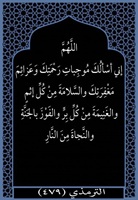 اللَّهُمَّ
إِنِي أَسْأَلُكَ مُوجِبَاتِ رَحْمَتِكَ وَعَزَائِمَ
مَغْفِرَتِكَ وَالسَّلَامَةَ مِنْ كُلِّ إِثْمٍ
وَالغَنِيمَةَ مِنْ كُلِّ بِرٍّ وَالفَوْزَ بِالجَنَّةِ
وَالنَّجَاةَ مِنَ النَّارِ
الترمذي (٤٧٩)